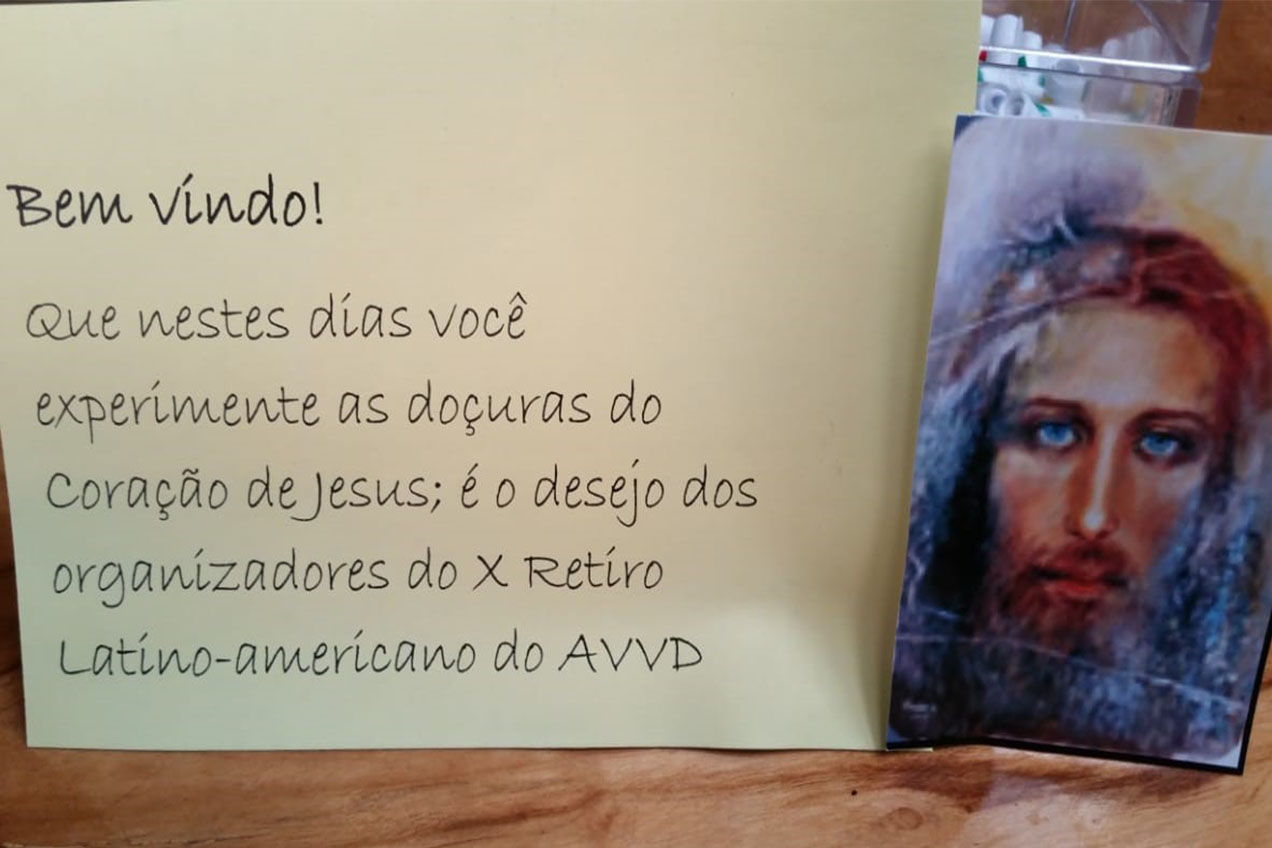 Bem vindo!
Que nestes días você
experimente as doçuras do
Coração de Jesus; é o desejo dos
organizadores do X Retiro
Latino-americano do AVVD